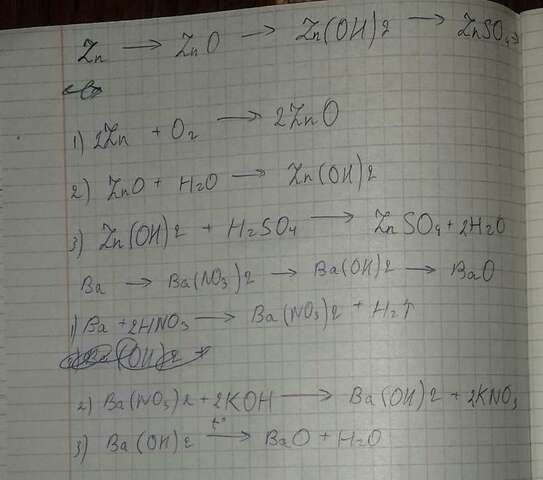 Zn → ZnO → Zn(OH)2 → ZnSO4
1) 2Zn + O2 → 2ZnO
2) ZnO + H2O → Zn(OH)2
3) Zn(OH)2 + H2SO4 → ZnSO4 + 2H2O
Ba → Ba(NO3)2 → Ba(OH)2 → BaO
1) Ba + 2HNO3 → Ba(NO3)2 + H2↑
2) Ba(NO3)2 + 2KOH → Ba(OH)2 + 2KNO3
3) Ba(OH)2 t°→ BaO + H2O